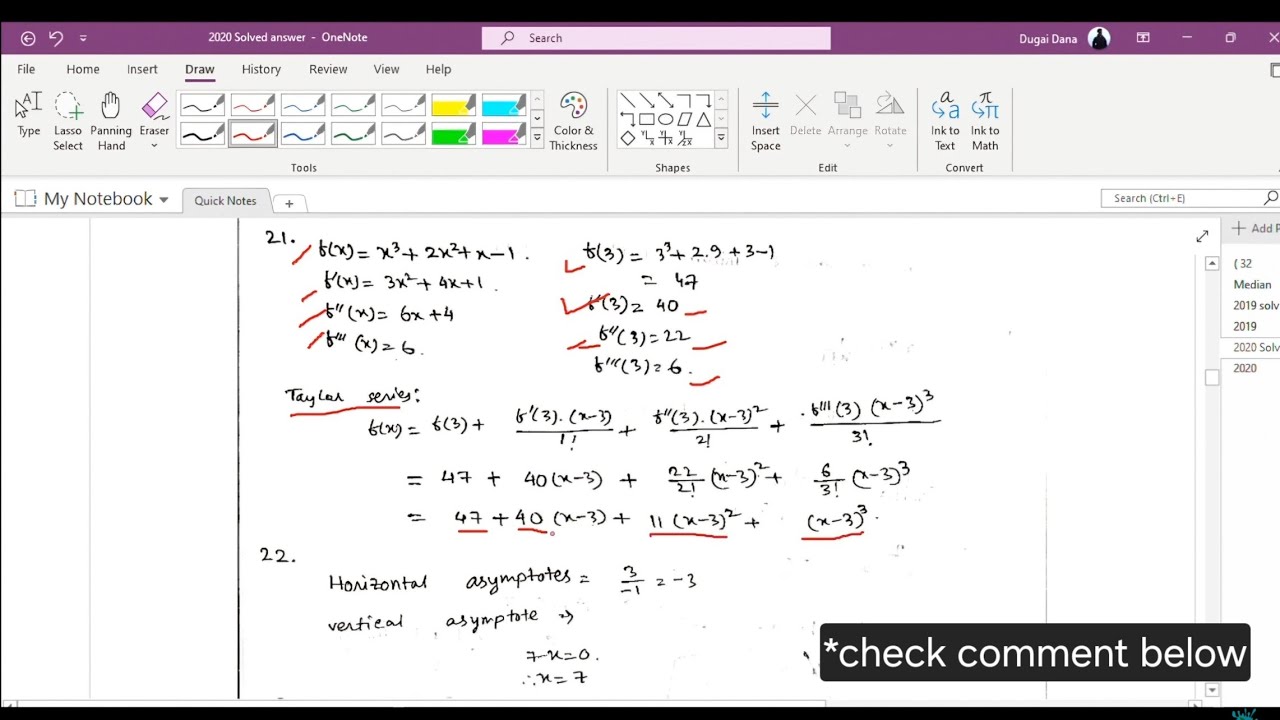 2020 Solved answer - OneNote
Search
Dugai Dana
File Home Insert Draw History Review View Help
Type
Lasso Select
Panning Hand
Eraser
Color & Thickness
Insert Space
Delete
Arrange
Rotate
Ink to Text
Ink to Math
Tools
Shapes
Edit
Convert
My Notebook
Quick Notes
Search (Ctrl+E)
Add P
( 32
Median
2019 solv
2019
2020 Solv
2020
21.
f(x) = x³ + 2x² + x − 1.
f'(x) = 3x² + 4x + 1.
f''(x) = 6x + 4
f''' (x) = 6.
f(3) = 3³ + 2.9 + 3 − 1
= 47
f'(3) = 40
f''(3) = 22
f'''(3) = 6.
Taylor series:
f(x) = f(3) + f'(3).(x−3)/1! + f''(3).(x−3)²/2! + f'''(3) (x−3)³/3!
= 47 + 40(x−3) + 22/2! (x−3)² + 6/3! (x−3)³
= 47 + 40 (x−3) + 11 (x−3)² + (x−3)³.
22.
Horizontal asymptotes = 3/-1 = −3
vertical asymptote ⇒
7−x=0.
∴x = 7
*check comment below